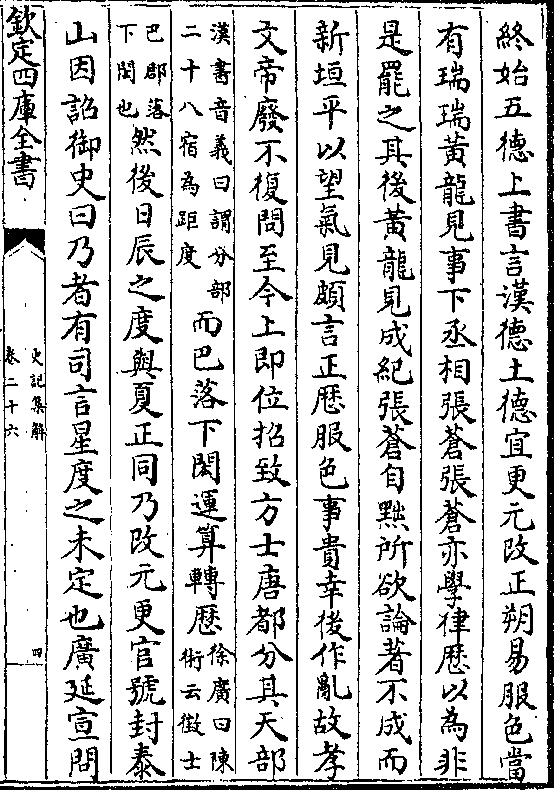 終始五德上書言漢德土德宜更元改正朔易服色當
有瑞瑞黃龍見事下丞相張蒼張蒼亦學律厯以為非
是罷之其後黃龍見成紀張蒼自黜所欲論著不成而
新垣平以望氣見頗言正厯服色事貴幸後作亂故孝
文帝廢不復問至今上即位招致方士唐都分其天部
漢書音義曰謂分部
二十八宿為距度
而巴落下閎運算轉厯
徐廣曰陳
術云徵士
巴郡落
下閎也
然後日辰之度與夏正同乃改元更官號封泰
山因詔御史曰乃者有司言星度之未定也廣延宣問
欽定四庫全書
史記集解
卷二十六
四